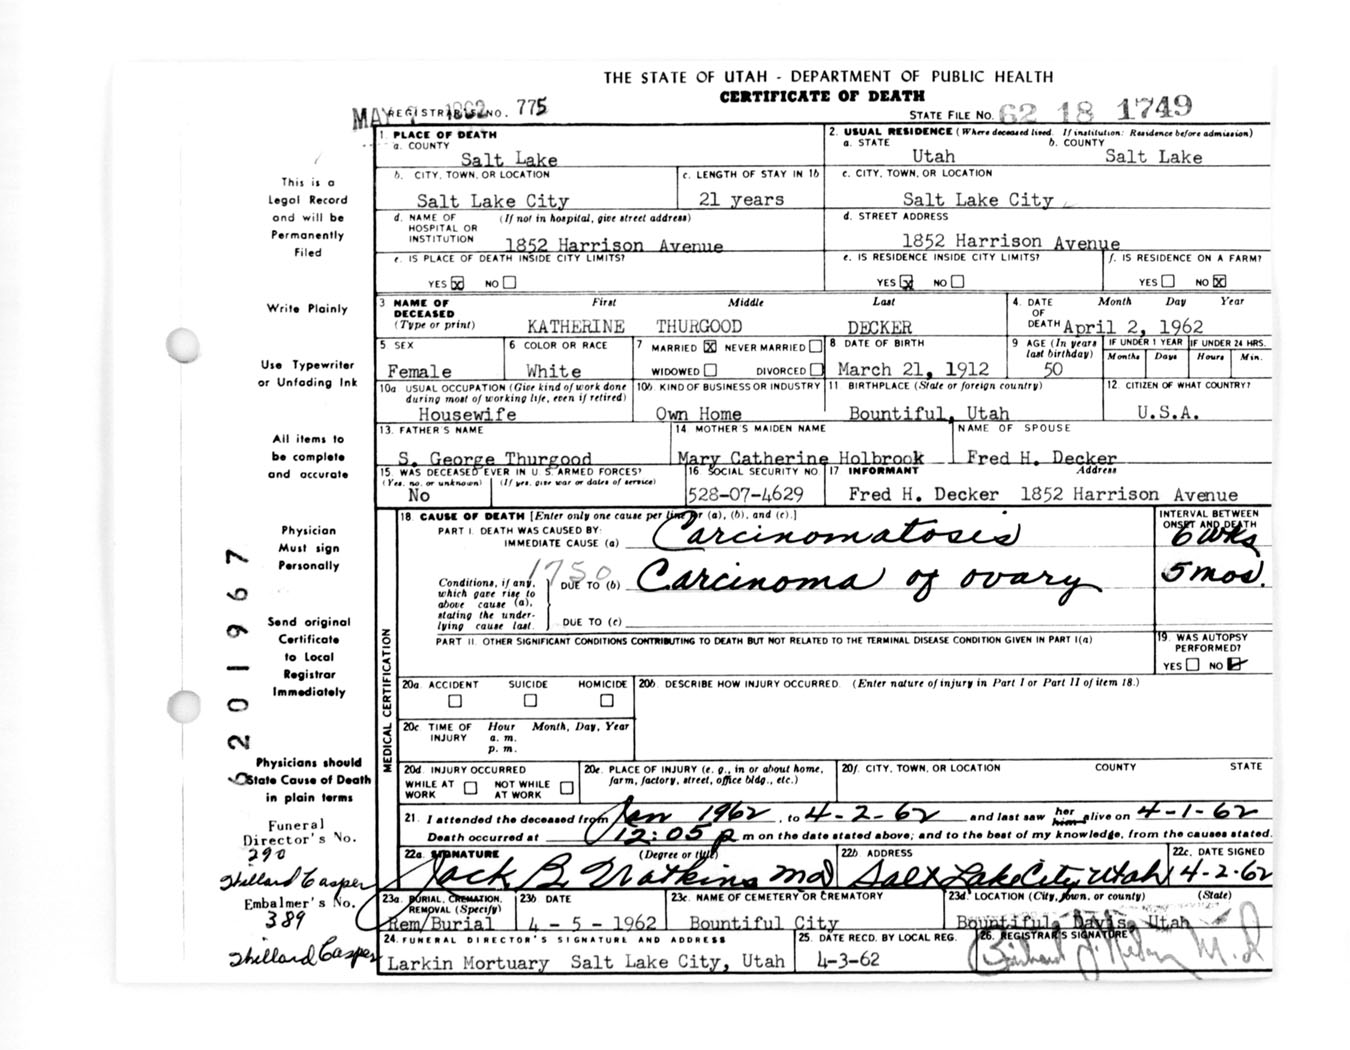 THE STATE OF UTAH - DEPARTMENT OF PUBLIC HEALTH
CERTIFICATE OF DEATH
MAY 1962 REGISTRAR'S NO. 775
STATE FILE NO. 62 18 1749
1. PLACE OF DEATH
a. COUNTY
Salt Lake
2. USUAL RESIDENCE (Where deceased lived. If institution: Residence before admission)
a. STATE b. COUNTY
Utah Salt Lake
b. CITY, TOWN, OR LOCATION
Salt Lake City
c. LENGTH OF STAY IN 1b
21 years
c. CITY, TOWN, OR LOCATION
Salt Lake City
d. NAME OF HOSPITAL OR INSTITUTION (If not in hospital, give street address)
1852 Harrison Avenue
d. STREET ADDRESS
1852 Harrison Avenue
e. IS PLACE OF DEATH INSIDE CITY LIMITS?
YES x NO
e. IS RESIDENCE INSIDE CITY LIMITS?
YES x NO
f. IS RESIDENCE ON A FARM?
YES NO x
3 NAME OF DECEASED (Type or print)
First Middle Last
KATHERINE THURGOOD DECKER
4. DATE OF DEATH Month Day Year
April 2, 1962
5 SEX
Female
6 COLOR OR RACE
White
7 MARRIED x NEVER MARRIED
WIDOWED DIVORCED
8 DATE OF BIRTH
March 21, 1912
9 AGE (In years last birthday)
50
IF UNDER 1 YEAR
Months Days
IF UNDER 24 HRS.
Hours Min.
10a USUAL OCCUPATION (Give kind of work done during most of working life, even if retired)
Housewife
10b. KIND OF BUSINESS OR INDUSTRY
Own Home
11 BIRTHPLACE (State or foreign country)
Bountiful, Utah
12 CITIZEN OF WHAT COUNTRY?
U.S.A.
13. FATHER'S NAME
S. George Thurgood
14 MOTHER'S MAIDEN NAME
Mary Catherine Holbrook
NAME OF SPOUSE
Fred H. Decker
15. WAS DECEASED EVER IN U.S. ARMED FORCES?
(Yes, no, or unknown) (If yes, give war or dates of service)
No
16 SOCIAL SECURITY NO
528-07-4629
17 INFORMANT Address
Fred H. Decker 1852 Harrison Avenue
MEDICAL CERTIFICATION
18. CAUSE OF DEATH [Enter only one cause per line for (a), (b), and (c).]
PART I. DEATH WAS CAUSED BY:
IMMEDIATE CAUSE (a) Carcinomatosis
INTERVAL BETWEEN ONSET AND DEATH
6 wks
1750
Conditions, if any, which gave rise to above cause (a), stating the underlying cause last.
DUE TO (b) Carcinoma of ovary
5 mos.
DUE TO (c)
PART II. OTHER SIGNIFICANT CONDITIONS CONTRIBUTING TO DEATH BUT NOT RELATED TO THE TERMINAL DISEASE CONDITION GIVEN IN PART I(a)
19. WAS AUTOPSY PERFORMED?
YES NO
20a. ACCIDENT SUICIDE HOMICIDE
20b. DESCRIBE HOW INJURY OCCURRED. (Enter nature of injury in Part I or Part II of item 18.)
20c TIME OF INJURY Hour Month, Day, Year
a. m.
p. m.
20d. INJURY OCCURRED
WHILE AT WORK NOT WHILE AT WORK
20e. PLACE OF INJURY (e. g., in or about home, farm, factory, street, office bldg., etc.)
20f. CITY, TOWN, OR LOCATION COUNTY STATE
21. I attended the deceased from Jan 1962, to 4-2-62 and last saw her him alive on 4-1-62
Death occurred at 12:05 p m on the date stated above; and to the best of my knowledge, from the causes stated.
22a. SIGNATURE (Degree or title)
Jack B. Watkins MD
22b ADDRESS
Salt Lake City, Utah
22c. DATE SIGNED
4-2-62
23a. BURIAL, CREMATION, REMOVAL (Specify)
Rem/Burial
23b DATE
4-5-1962
23c. NAME OF CEMETERY OR CREMATORY
Bountiful City
23d. LOCATION (City, town, or county) (State)
Bountiful Davis, Utah
24. FUNERAL DIRECTOR'S SIGNATURE AND ADDRESS
Larkin Mortuary Salt Lake City, Utah
25. DATE RECD. BY LOCAL REG.
4-3-62
26. REGISTRAR'S SIGNATURE
M.D
This is a
Legal Record
and will be
Permanently
Filed
Write Plainly
Use Typewriter
or Unfading Ink
All items to
be complete
and accurate
Physician
Must sign
Personally
Send original
Certificate
to Local
Registrar
Immediately
Physicians should
State Cause of Death
in plain terms
Funeral
Director's No.
290
Hillard Casper
Embalmer's No.
389
Hillard Casper
6201967